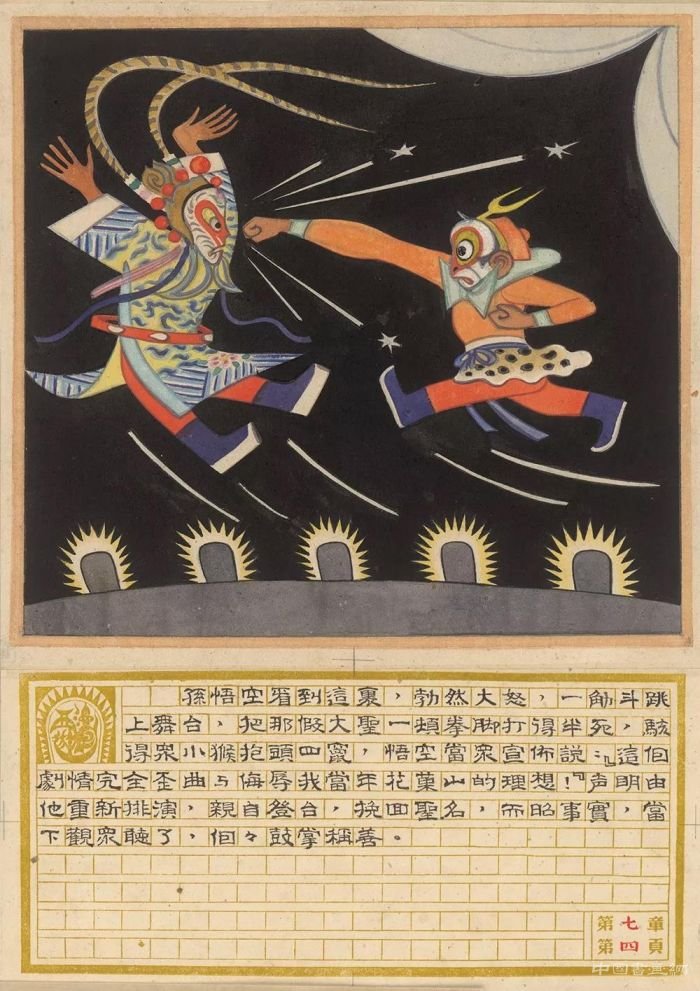 孫悟空看到這裏，勃然大怒，一觔斗跳
上舞台，把那假大聖一頓拳脚打得半死，駭
得衆小猴抱頭四竄，悟空當衆宣佈説：「這個
劇情完全歪曲与侮辱我當年花菓山的理想！」声明由
他重新排演，親自登台，挽囬聖名，而昭事實，當
下觀衆聽了，個々鼓掌稱善。
第七章
第四頁